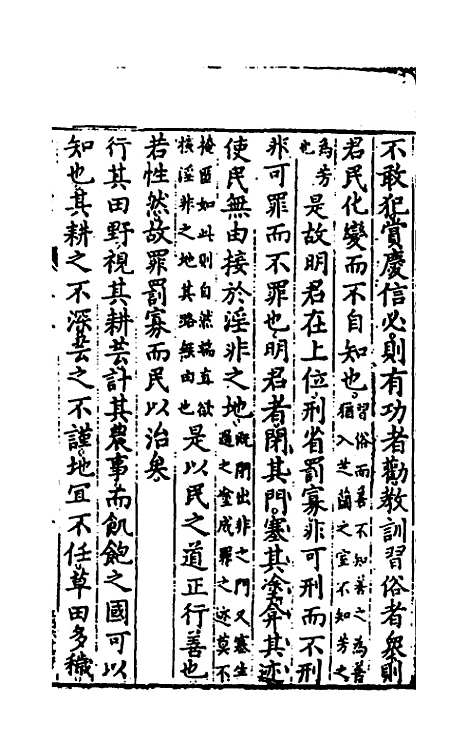 不敢犯賞慶信必則有功者勸教訓習俗者衆則
君民化變而不自知也習俗而善不知善之為善猶入芝蘭之室不知芳之
為芳也是故明君在上位刑省罰寡非可刑而不刑
非可罪而不罪也明君者閉其門塞其塗弇其迹
使民無由接於淫非之地既閉出非之門又塞生過之塗成罪之迹莫不
掩匿如此則自然端直欲接淫非之地其路無由也是以民之道正行善也
若性然故罪罰寡而民以治矣
行其田野視其耕芸計其農事而飢飽之國可以
知也其耕之不深芸之不謹地宜不任草田多穢